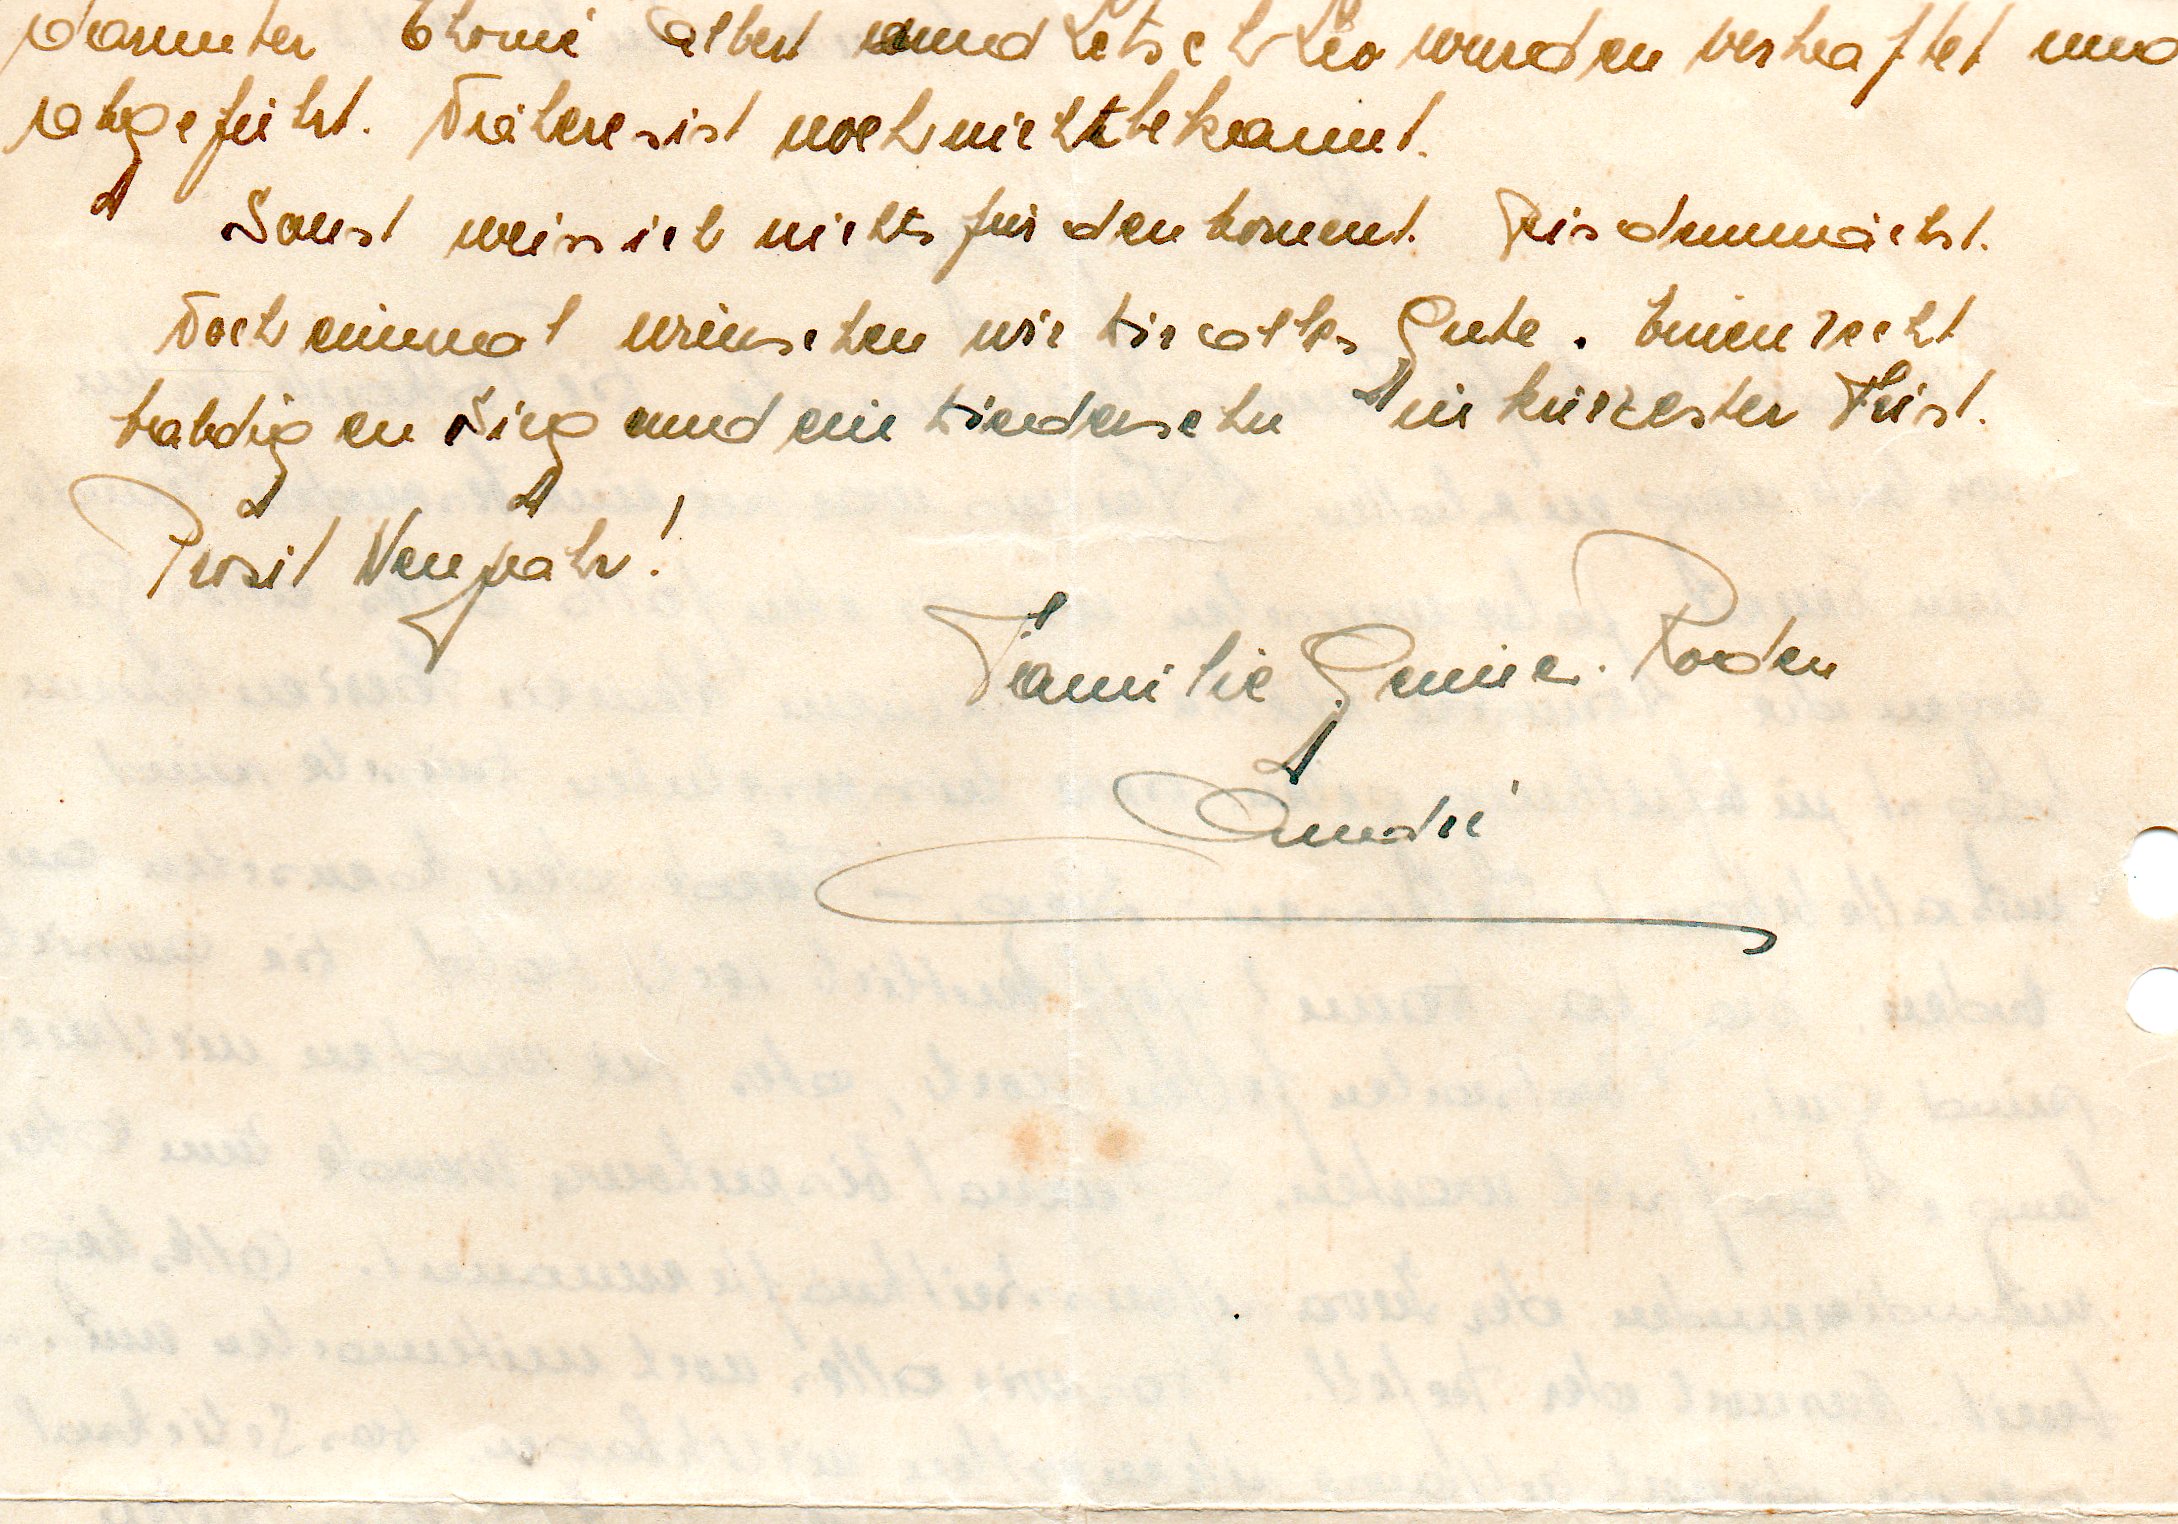 darunter Thomé Albert und Letsch Leo wurden verhaftet und
abgeführt. Näheres ist noch nicht bekannt.
Sonst weiss ich nichts für den Moment. Bis demnächst.
Noch einmal wünschen wir dir alles Gute. Einen recht
baldigen Sieg und ein Wiedersehn in kürzester Frist.
Prosit Neujahr!
Familie Roden
André